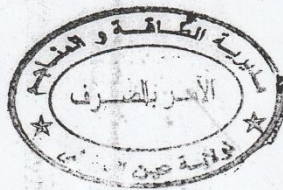 مديرية الطاقة و المناجم
الآمر بالصرف
لولاية عين